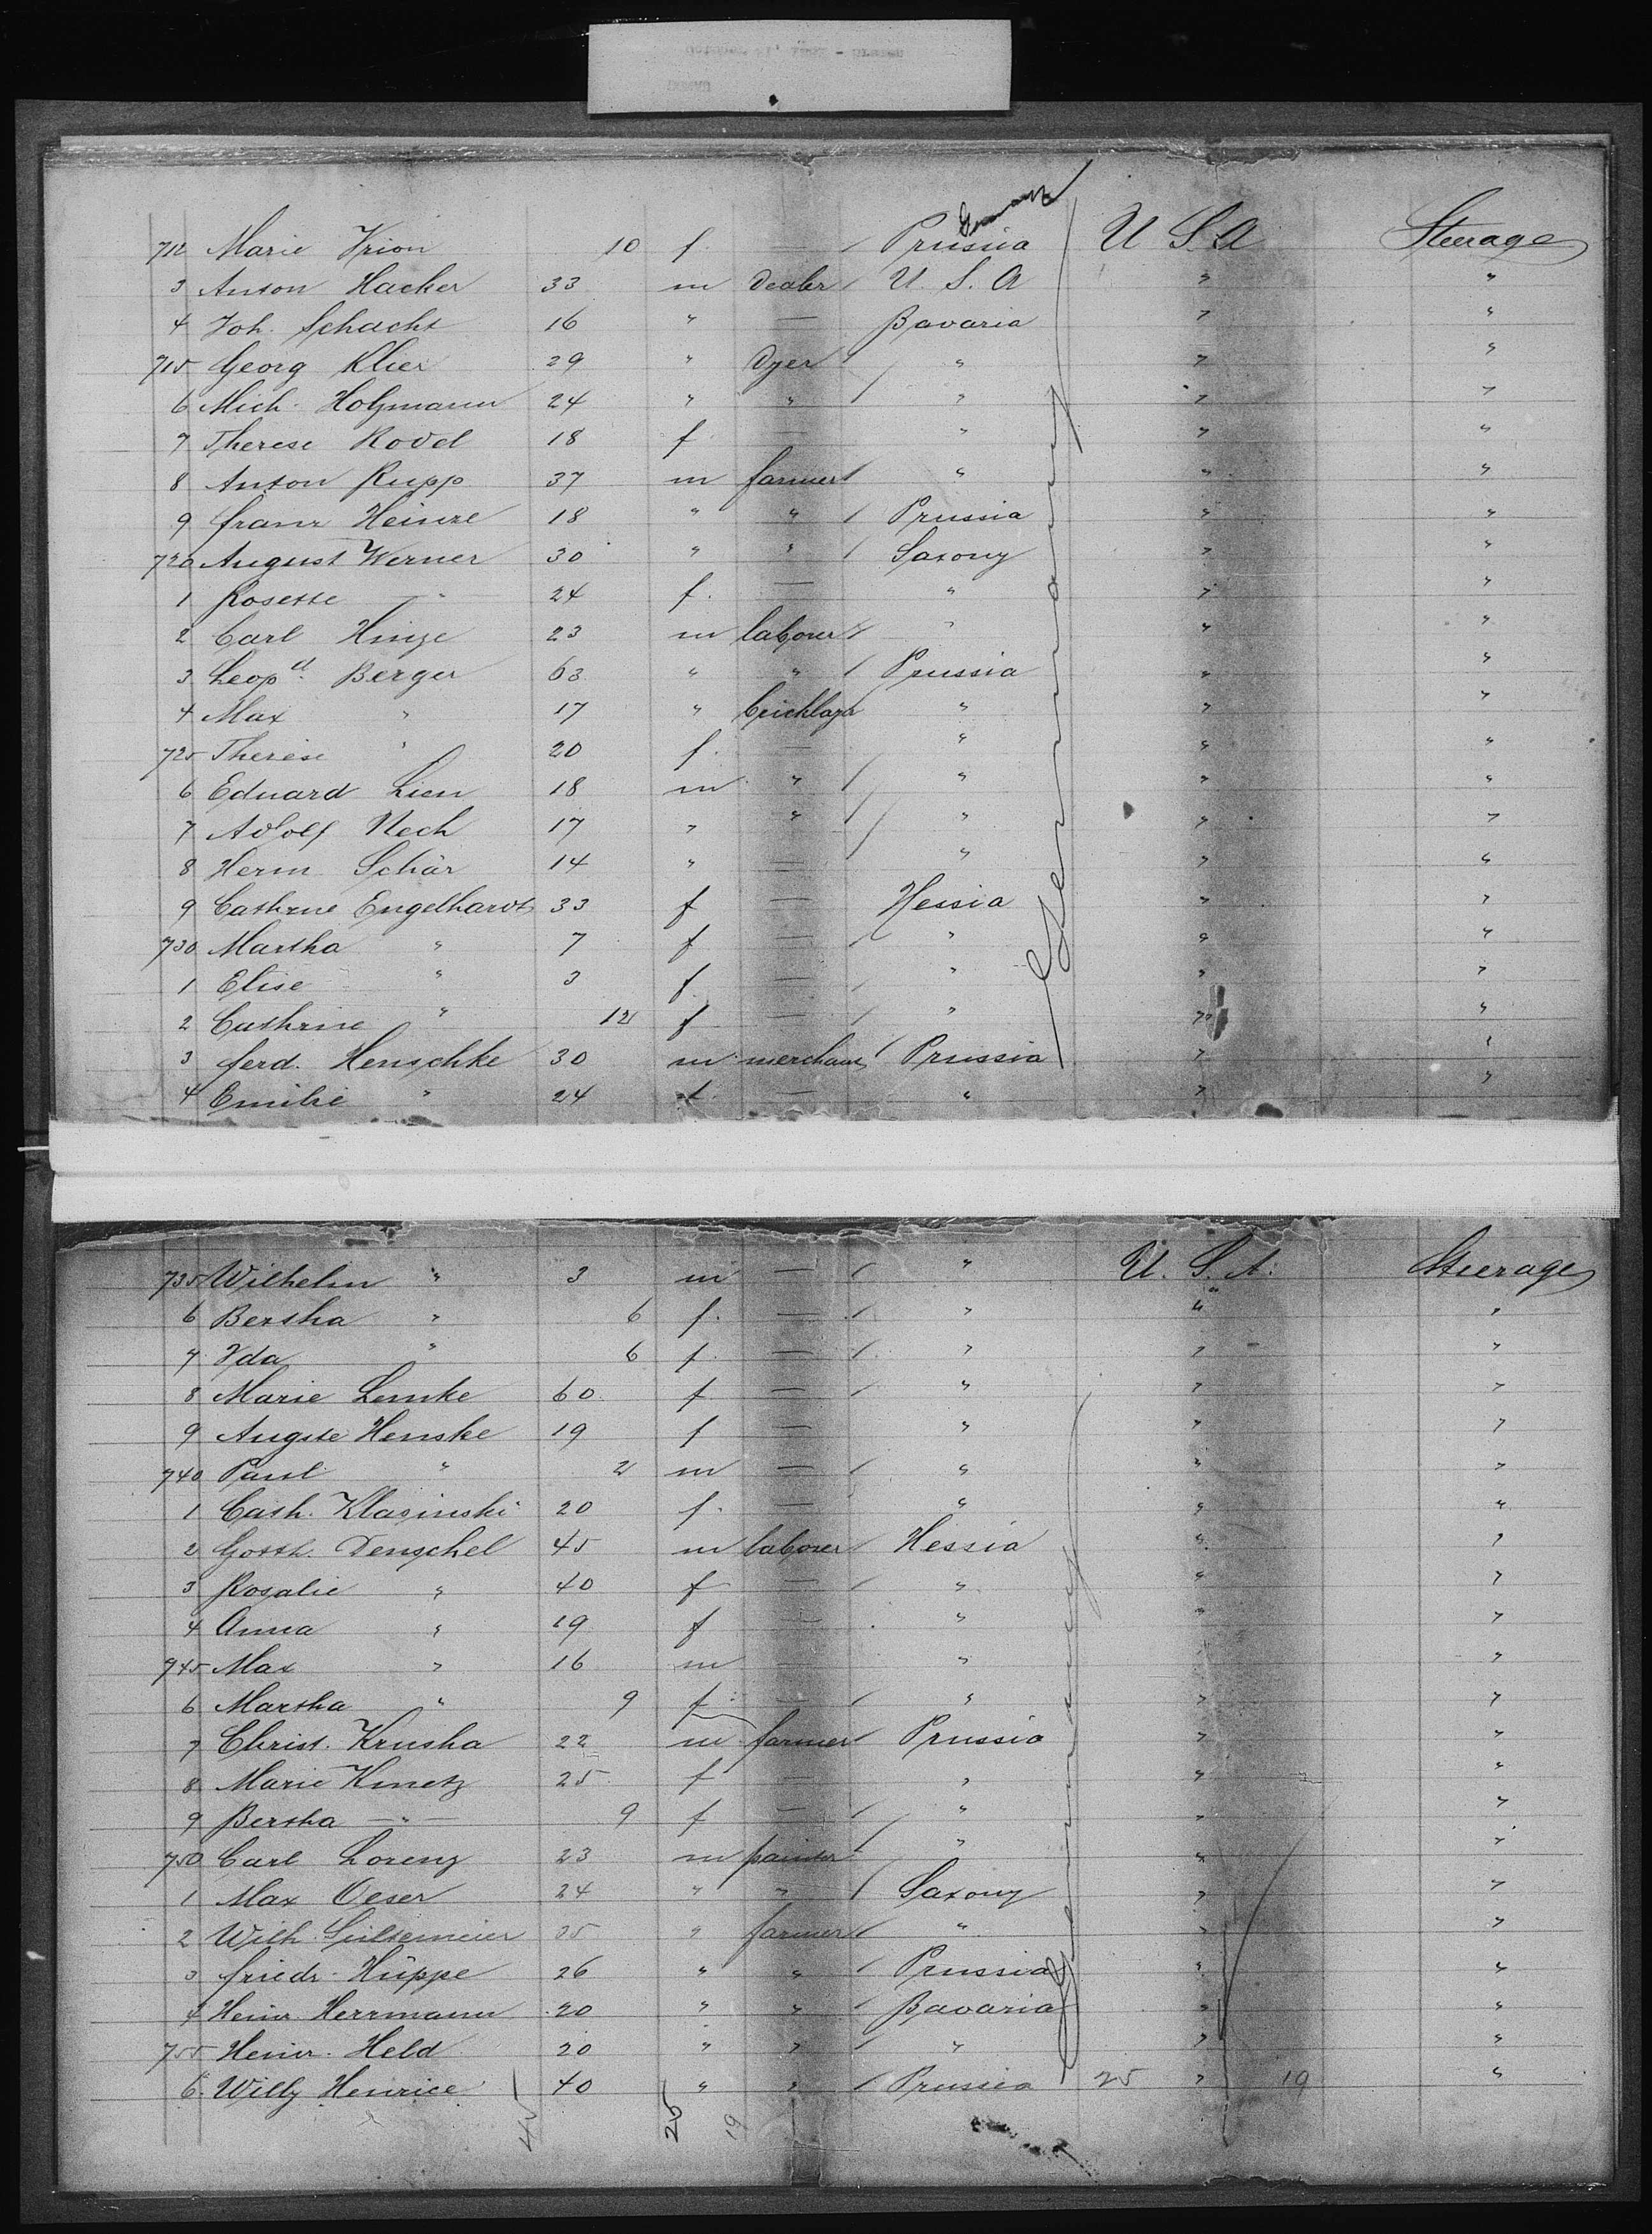 Germany
712 Marie Krion 10 f. — / Prussia U S A Steerage
3 Anton Hacker 33 m Dealer / U. S. A " "
4 Joh. Schacht 16 " — Bavaria " "
715 Georg Klier 29 " Dyer / " " "
6 Mich. Holzmann 24 " " / " " "
7 Therese Rodel 18 f — " " "
8 Anton Rupp 37 m farmer / " " "
9 Franz Heinze 18 " " / Prussia " "
720 August Werner 30 " " / Saxony " "
1 Rosette " 24 f. — " " "
2 Carl Hinze 23 m laborer / " " "
3 Leopd. Berger 63 " " / Prussia " "
4 Max " 17 " bricklayr " " "
725 Therese " 20 f. — " " "
6 Eduard Lien 18 m " / " " "
7 Adolf Nech 17 " " / " " "
8 Herm Schär 14 " — / " " "
9 Cathrne Engelhardt 33 f — Hessia " "
730 Martha " 7 f — / " " "
1 Elise " 3 f — / " " "
2 Cathrine " 12 f — / " " "
3 Ferd. Henschke 30 m merchant / Prussia " "
4 Emilie " 24 f. — " " "
Germany
735 Wilhelm " 3 m — / " U. S. A. Steerage
6 Bertha " 6 f. — / " " "
7 Ida " 6 f — / " " "
8 Marie Lemke 60 f — / " " "
9 Auguste Henske 19 f — " " "
740 Paul " 2 m — / " " "
1 Cath. Klasinski 20 f. — " " "
2 Gotth. Denschel 45 m laborer / Hessia " "
3 Rosalie " 40 f — / " " "
4 Anna " 19 f — " " "
745 Max " 16 m — " " "
6 Martha " 9 f — / " " "
7 Christ. Krusha 22 m farmer / Prussia " "
8 Marie Kmetz 25 f — " " "
9 Bertha — " — 9 f — / " " "
750 Carl Lorenz 23 m painter / " " "
1 Max Oeser 24 " " / Saxony " "
2 Wilh. 35 " farmer / " " "
3 Friedr. Hüppe 26 " " / Prussia " "
4 Heinr. Herrmann 20 " " / Bavaria " "
755 Heinr. Held 20 " " / " " "
6. Willy Henrice 40 " " / Prussia 25 " 19 "
Germany
45 25 19